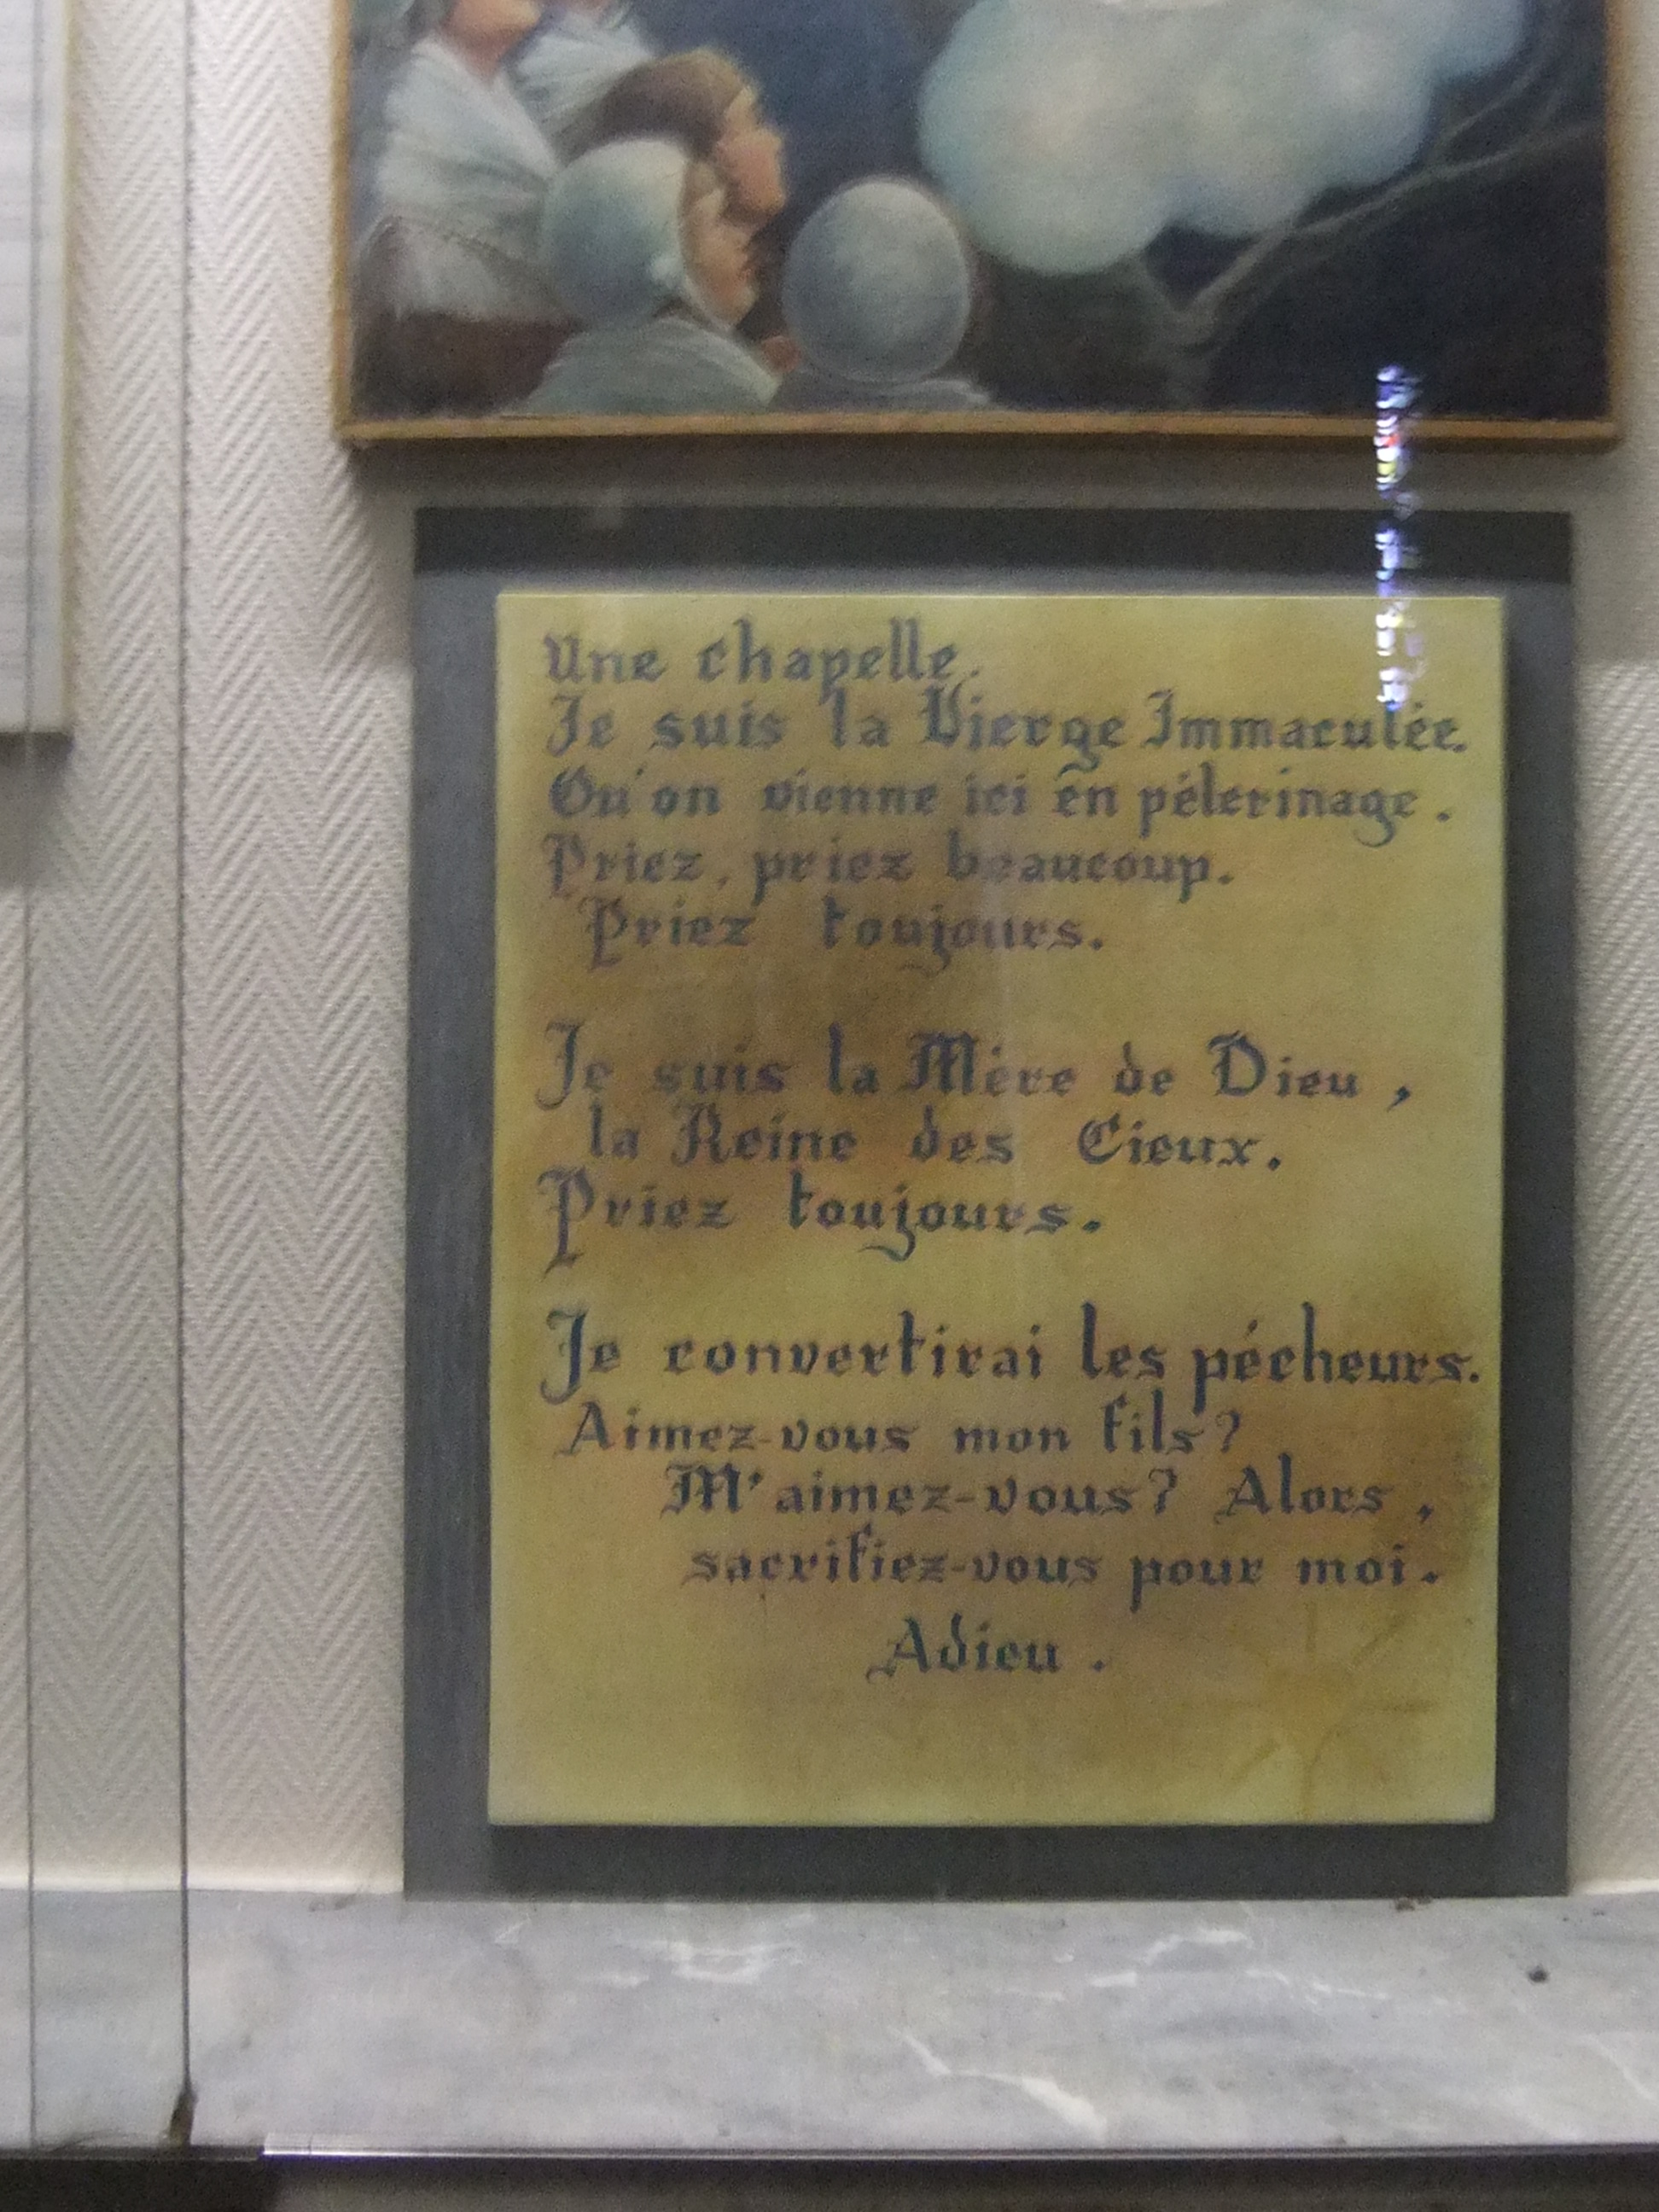 Une chapelle.
Je suis la Vierge Immaculée.
Qu'on vienne ici en pélerinage.
Priez, priez beaucoup.
Priez toujours.
Je suis la Mère de Dieu,
la Reine des Cieux.
Priez toujours.
Je convertirai les pécheurs.
Aimez-vous mon fils?
M'aimez-vous? Alors,
sacrifiez-vous pour moi.
Adieu.